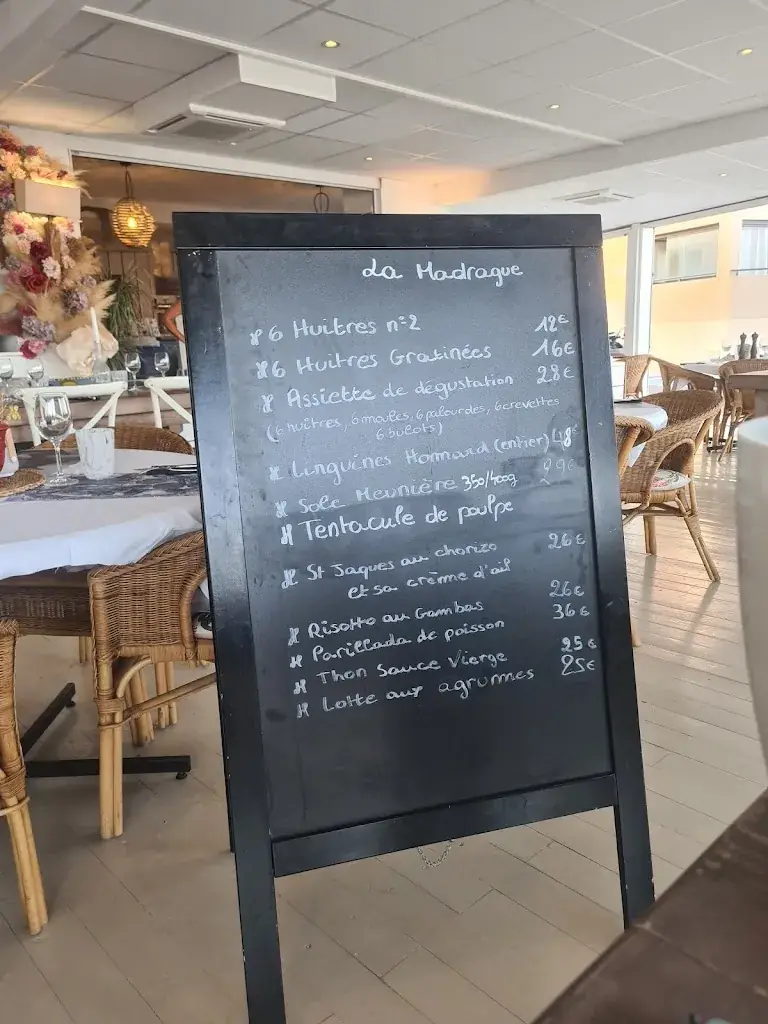 La Madrague
6 Huitres n°2 12€
6 Huitres Gratinées 16€
Assiette de dégustation 28€
(6 huîtres, 6 moules, 6 palourdes, 6 crevettes
6 bulots)
Linguines Hommard (entier) 48€
Sole Meunière 350/400g 29€
Tentacule de poulpe
St Jaques au chorizo 26€
et sa crème d'ail
Risotto au Gambas 26€
Parillada de poisson 36€
Thon Sauce Vierge 25€
Lotte aux agrumes 25€